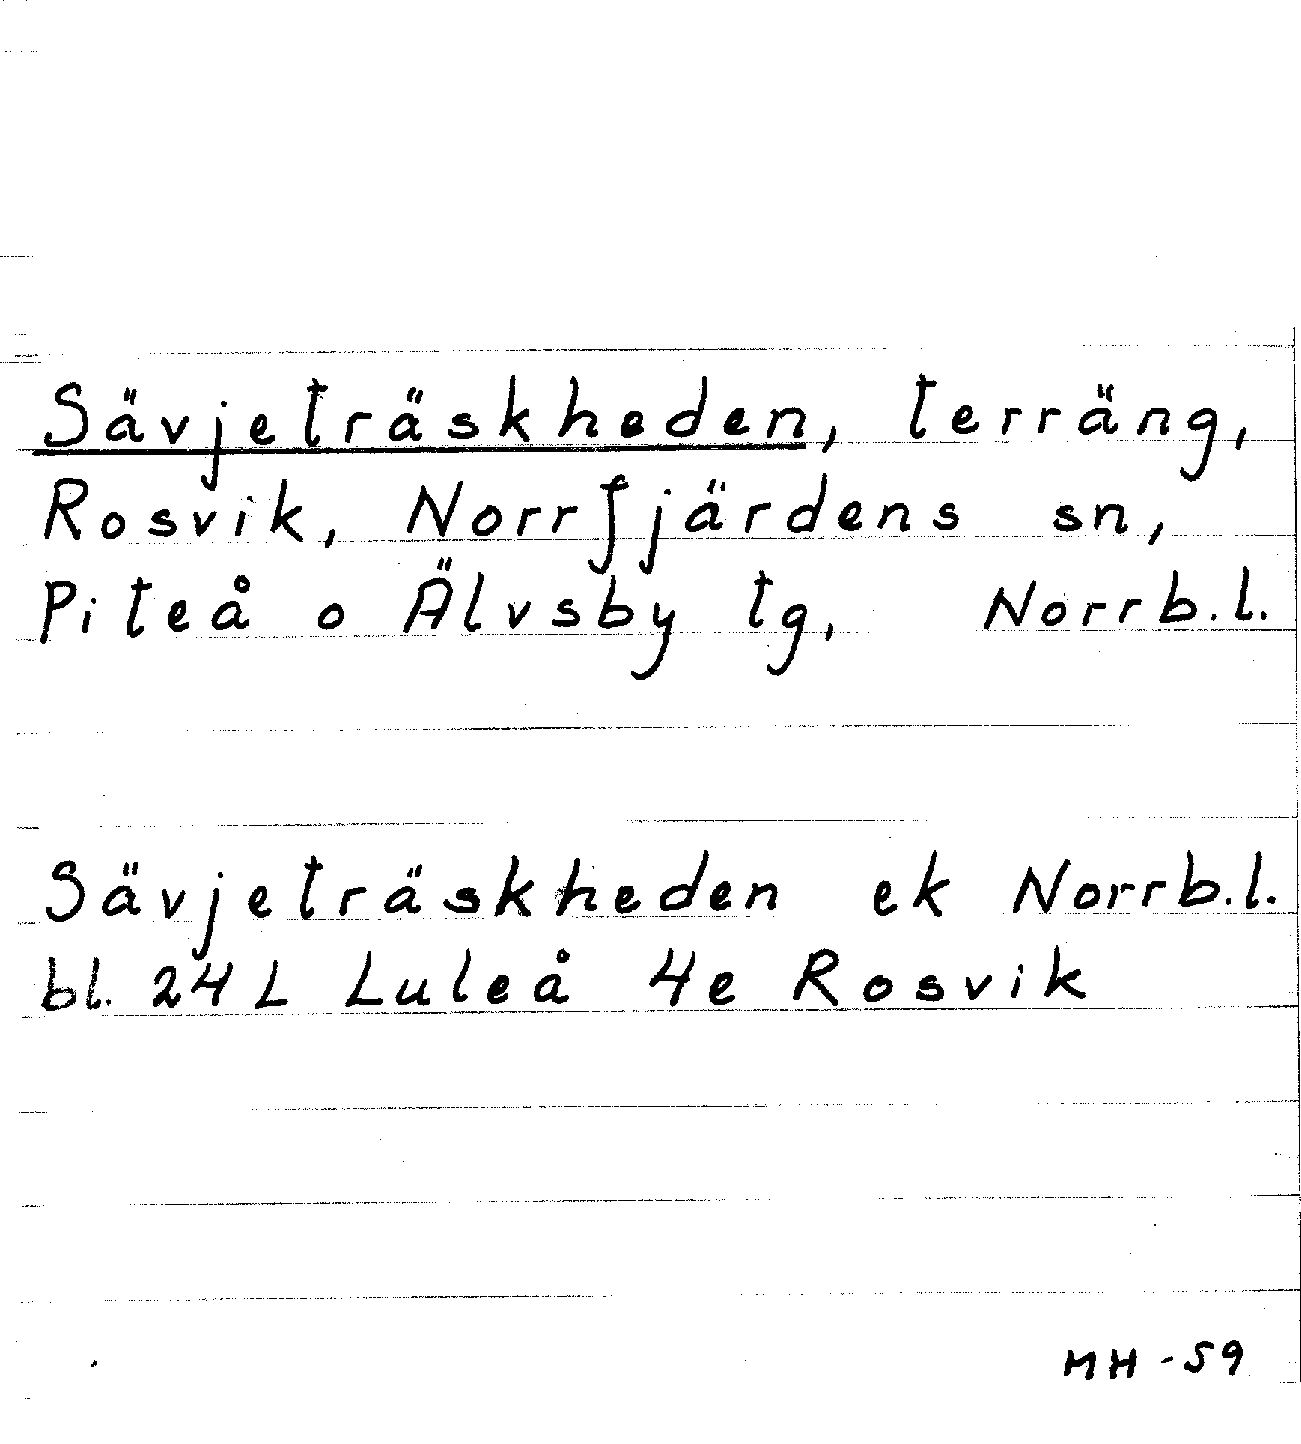 Sävjeträskheden, terräng,
Rosvik, Norrfjärdens sn,
Piteå o Älvsby tg, Norrb.l.
Sävjeträskheden ek Norrb.l.
bl. 24 L Luleå 4e Rosvik
MH -59